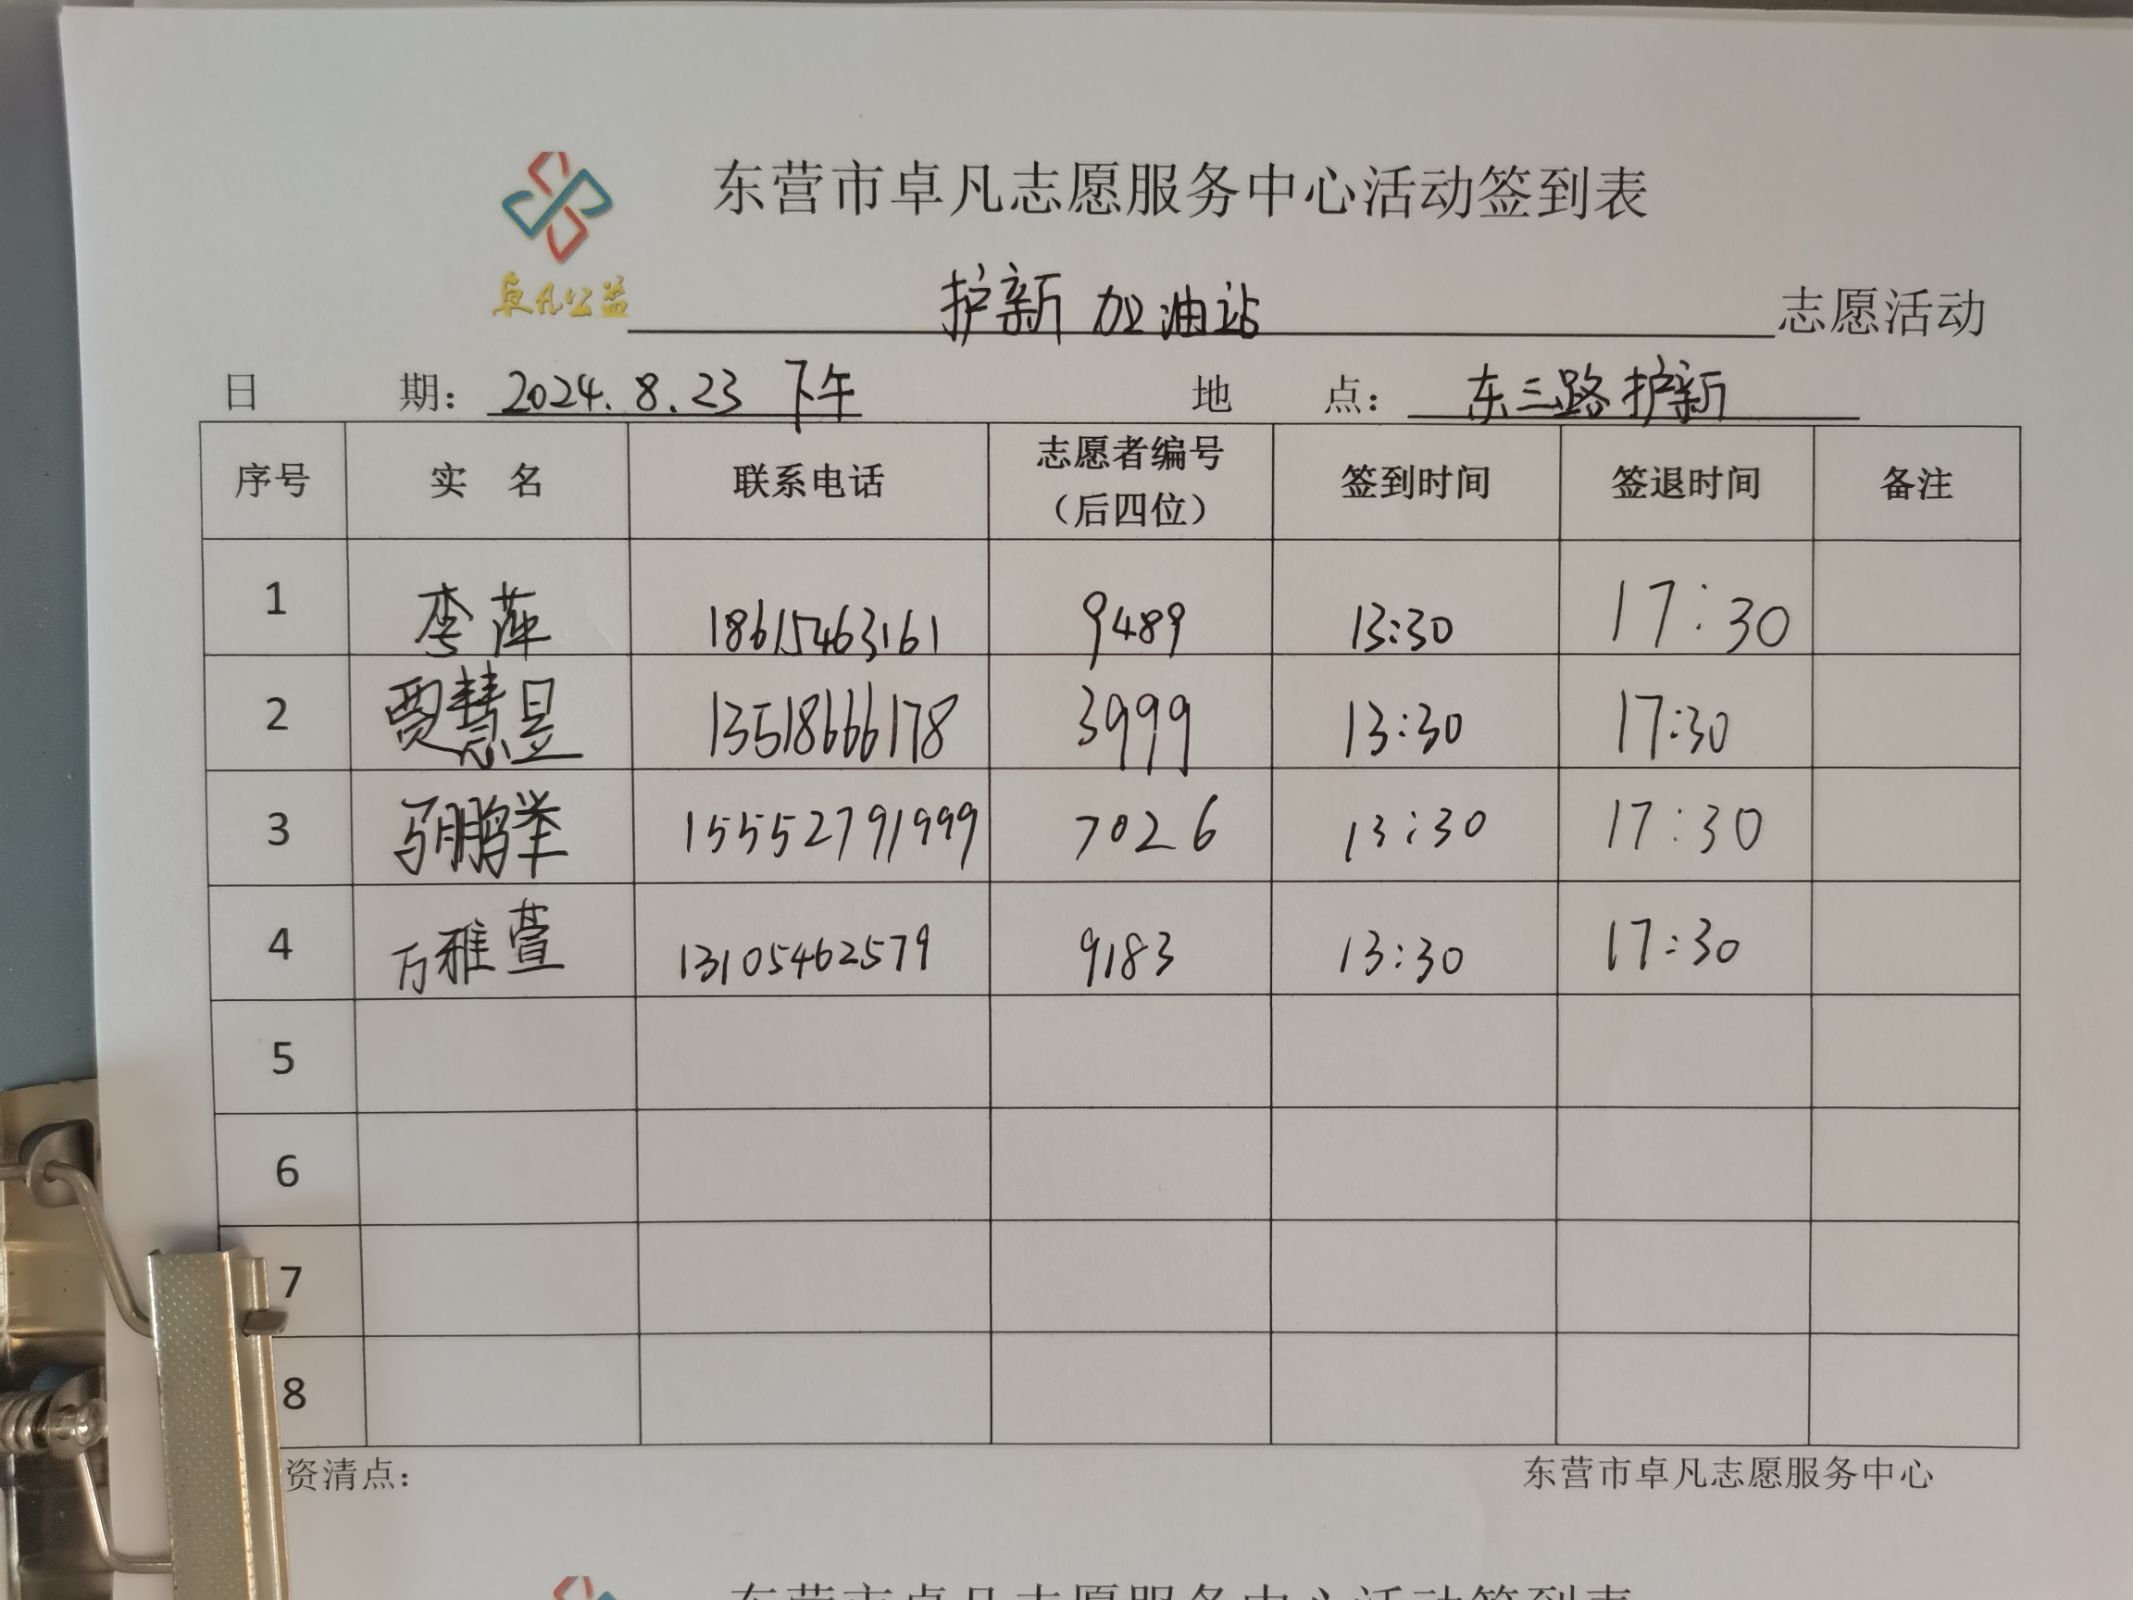 东营市卓凡志愿服务中心活动签到表
卓凡公益
护新加油站 志愿活动
日 期： 2024.8.23 下午 地 点： 东三路护新
序号 实 名 联系电话 志愿者编号（后四位） 签到时间 签退时间 备注
1 李萍 18615463161 9489 13:30 17:30
2 贾慧昱 13518666178 3999 13:30 17:30
3 马鹏举 15552791999 7026 13:30 17:30
4 万雅萱 13105462579 9183 13:30 17:30
5
6
7
8
资清点： 东营市卓凡志愿服务中心
东营市卓凡志愿服务中心活动签到表